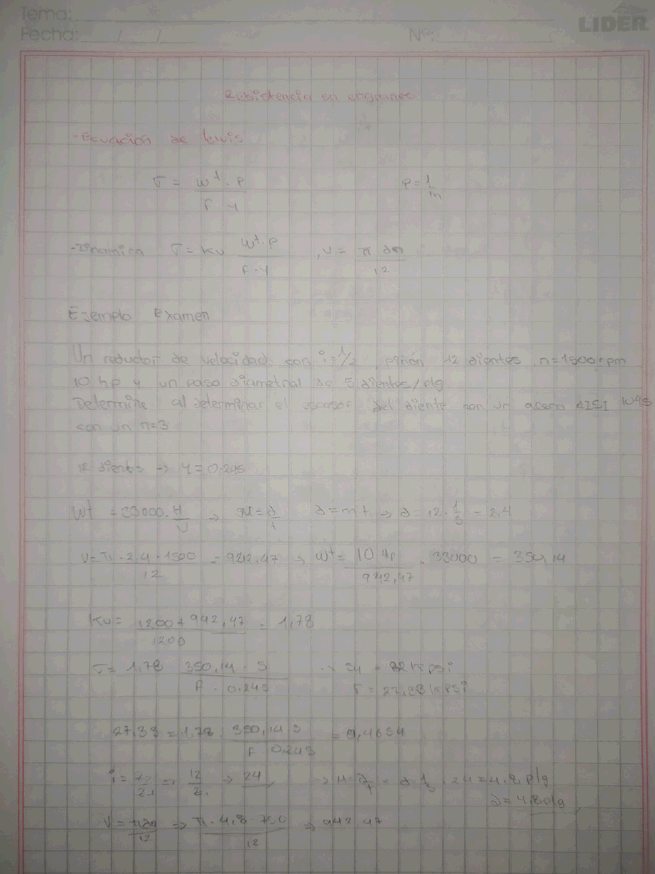 Tema:
LIDER
Fecha: / / N°:
Resistencia en engranes
- Ecuación de Lewis
σ = W^t · P / F · Y P = 1/m
- Dinamica σ = Kv W^t · P / F · Y , V = π dn / 12
Ejemplo Examen
Un reductor de velocidad con i=1/2 piñon 12 dientes n=1500 rpm
10 hp y un paso diametral de 5 dientes/plg
Determine al determinar el del diente con un acero AISI
con un n=3
12 dientes → Y = 0.245
W^t = 33000 · H/V ⇒ d = m t ⇒ d = 12 · 1/5 = 2.4
V = π · 2.4 · 1500 / 12 = 942,47 → W^t = 10 Hp / 942,47 · 33000 = 350,14
Kv = 1200 + 942,47 / 1200 = 1,78
σ = 1,78 350,14 · 5 / F · 0.245 → Sy = 82 kpsi
σ = 27,33 kpsi
27,33 = 1,78 · 350,14 · 5 / F 0.245 = 0,4654
⇒ 12 / ⇒ 24 · 24 = 4,8 plg
d = 4,8 plg
V = πdn / 12 ⇒ π · 4,8 750 / 12 ⇒ 942 47